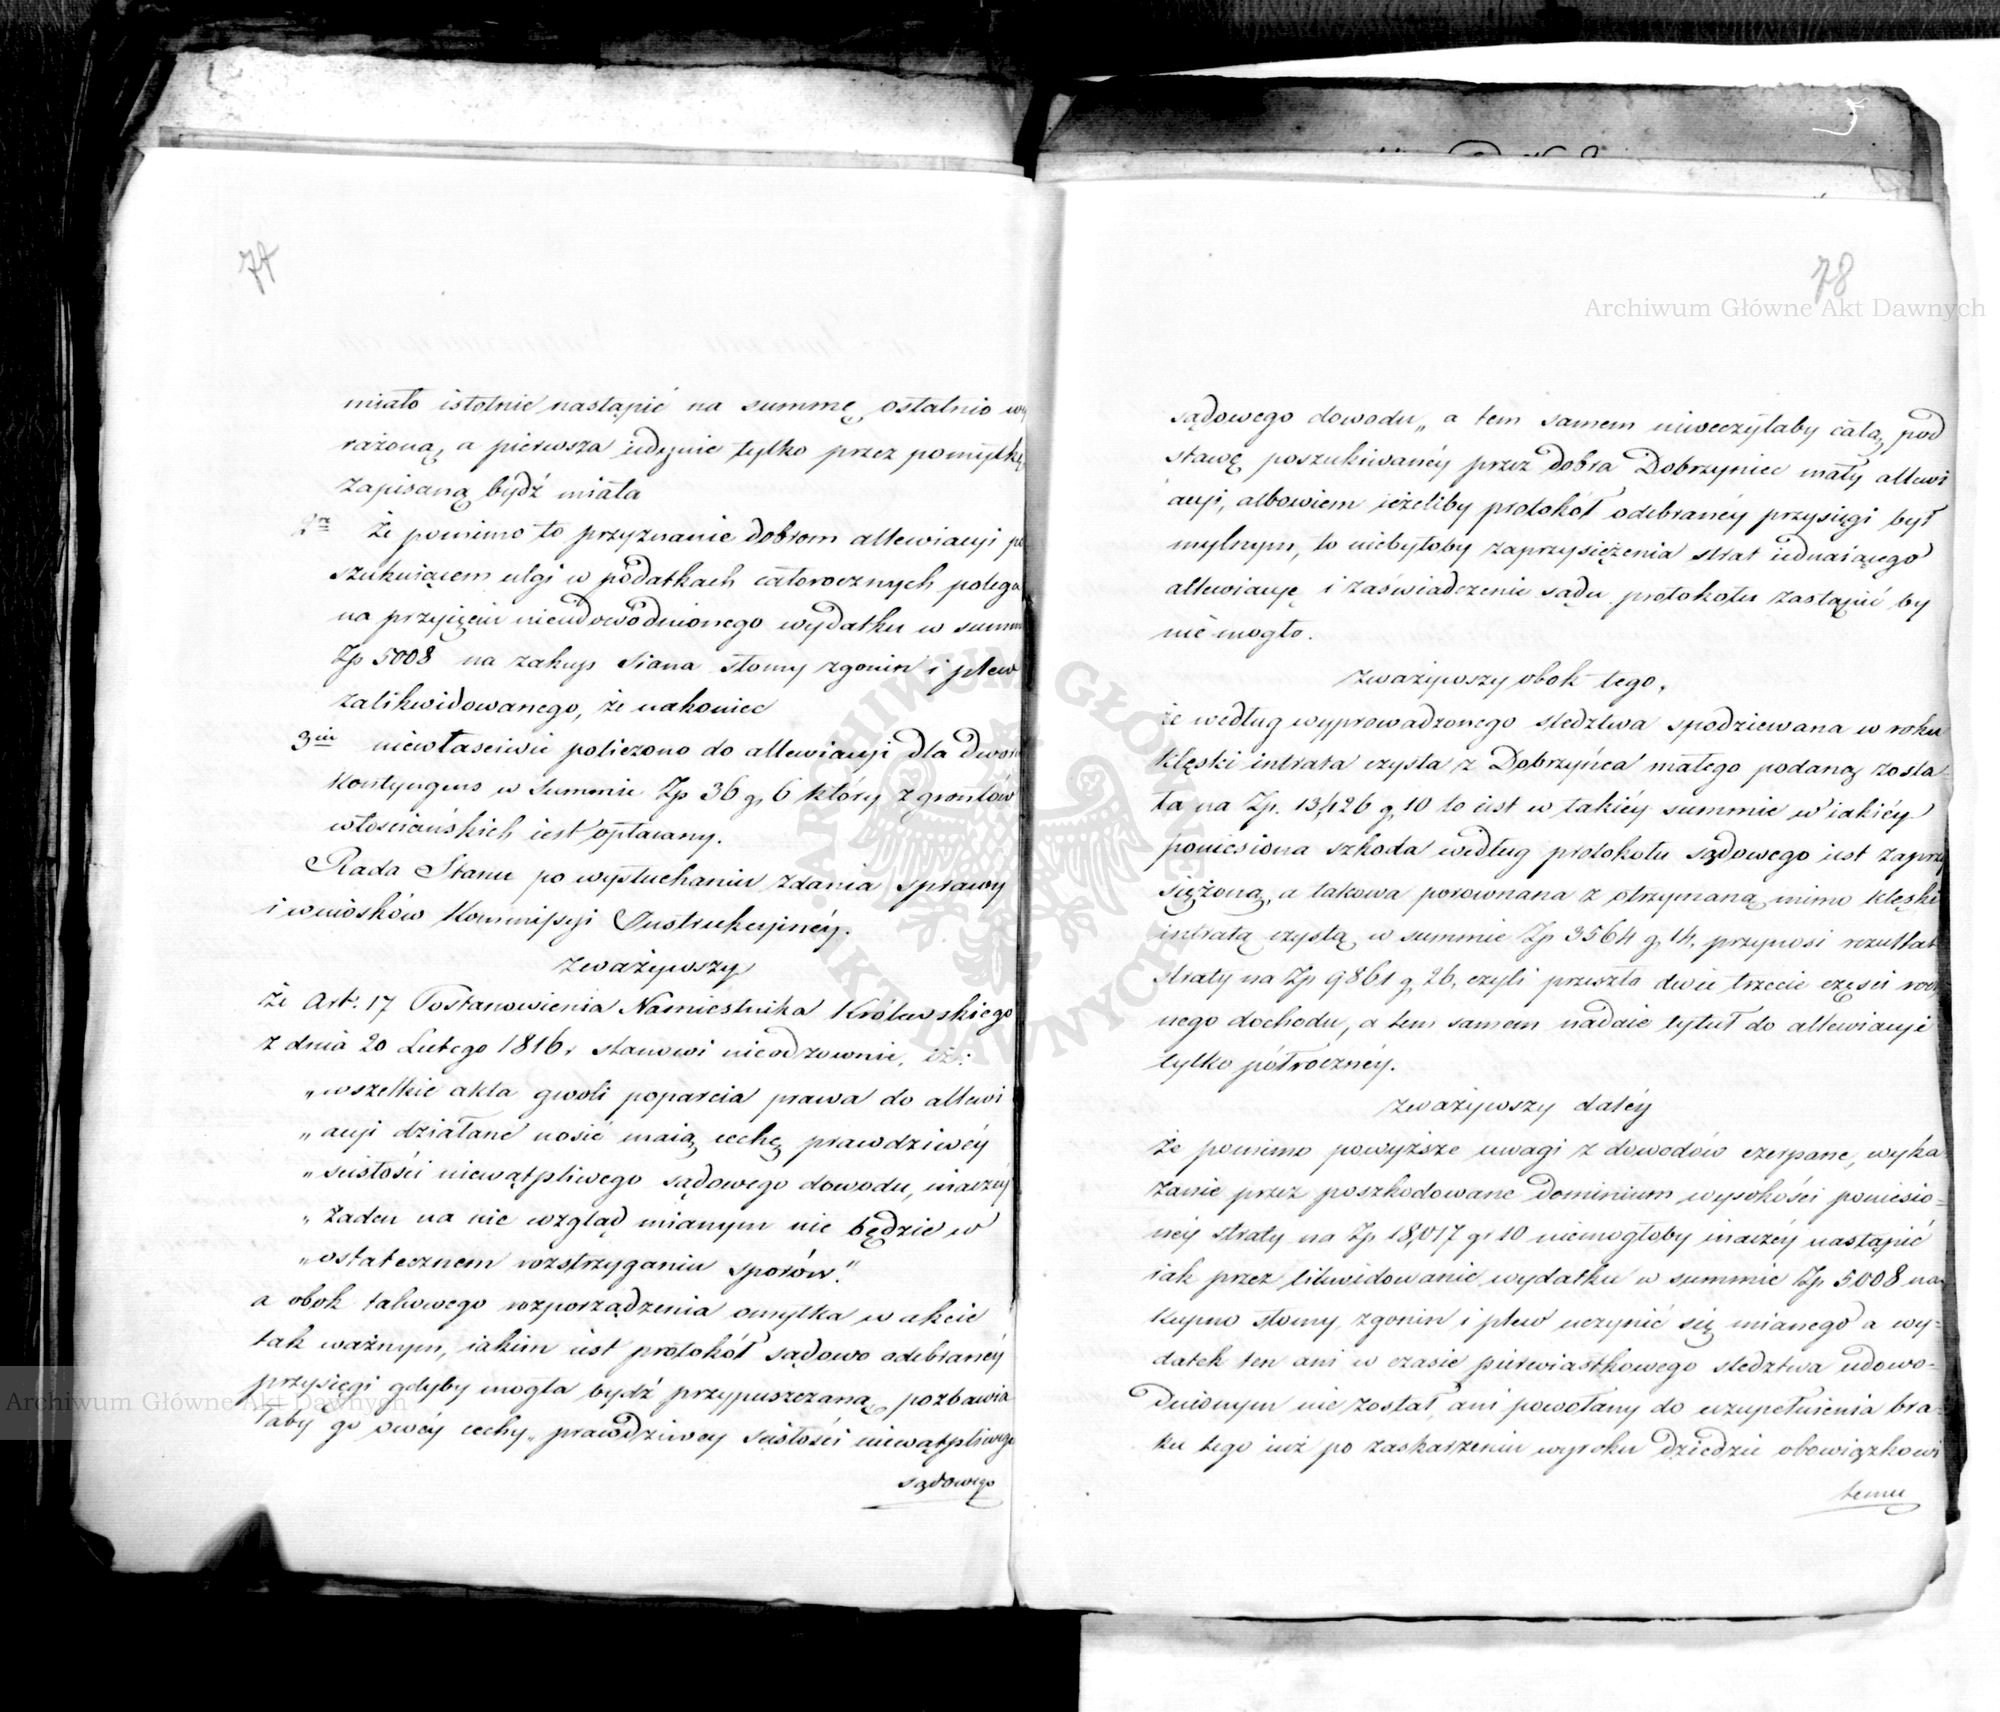 77
miało istotnie nastąpić na summę ostatnio wy
rażoną, a pierwsza iedynie tylko przez pomyłkę
zapisaną bydź miała
2re Że pomimo to przyznanie dobrom allewiacyi po
szukuiącem ulgi w podatkach całorocznych polega
na przyięciu nieudowodnionego wydatku w summ
Zp 5008 na zakup siana słomy zgonin i plew
zalikwidowanego, że nakoniec
3cie niewłaściwie policzono do allewiacyi dla dwor
Kontyngens w Summie Zp 36 g. 6 który z gruntów
włościańskich iest opłacany.
Rada Stanu po wysłuchaniu zdania sprawy
i wniosków Kommissyi Instrukcyinéy.
Zważywszy
że Art. 17 Postanowienia Namiestnika Królewskiego
z dnia 20 Lutego 1816 r stanowi nieodzownie, iż:
„wszelkie akta gwoli poparcia prawa do allewi
„acyi działane nosić maią cechę prawdziwéy
„ścisłości niewątpliwego sądowego dowodu, inaczéy
„żaden na nie wzgląd mianym nie będzie w
„ostatecznem rozstrzyganiu sporów."
a obok takowego rozporządzenia omyłka w akcie
tak ważnym, iakim iest protokół sądowo odebranéy
przysięgi gdyby mogła bydź przypuszczaną, pozbawia
łaby go owéy cechy „prawdziwey ścisłości niewątpliwego
sądowego
78
Archiwum Główne Akt Dawnych
sądowego dowodu„ a tem samem niweczyłaby całą pod
stawę poszukiwanéy przez dobra Dobrzyniec mały allewi
acyi, albowiem ieżeliby protokół odebranéy przysięgi był
mylnym, to niebyłoby zaprzysiężenia strat iednaiącego
allewiacyę i zaświadczenie sądu protokołu zastąpić by
nie mogło.
Zważywszy obok tego,
że według wyprowadzonego śledztwa spodziewana w roku
klęski intrata czysta z Dobrzyńca małego podaną zosta-
ła na Zp. 13,426 g. 10 to iest w takiéy summie w iakiéy
poniesiona szkoda według protokołu sądowego iest zaprzy
siężoną, a takowa porownana z otrzymaną mimo klęski
intratą czystą w summie Zp 3564 g. 14. przynosi rezultat
straty na Zp 9861 g. 26. czyli przeszło dwie trzecie części rocz
nego dochodu, a tem samem nadaie tytuł do allewiacyi
tylko półroczney.
Zważywszy daléy
Że pomimo powyższe uwagi z dowodów czerpane, wyka
zanie przez poszkodowane Dominium wysokości poniesio-
néy straty na Zp 18,017 gr 10 niemogłoby inaczéy nastąpić
iak przez likwidowanie wydatku w summie Zp 5008 na
kupno słomy, zgonin i plew uczynić się mianego a wy-
datek ten ani w czasie pierwiastkowego śledztwa udowo-
dnionym nie został, ani powołany do uzupełnienia bra-
ku tego iuż po zaskarżeniu wyroku dziedzic obowiązkowi
temu
Archiwum Główne Akt Dawnych
ARCHIWUM GŁÓWNE AKT DAWNYCH